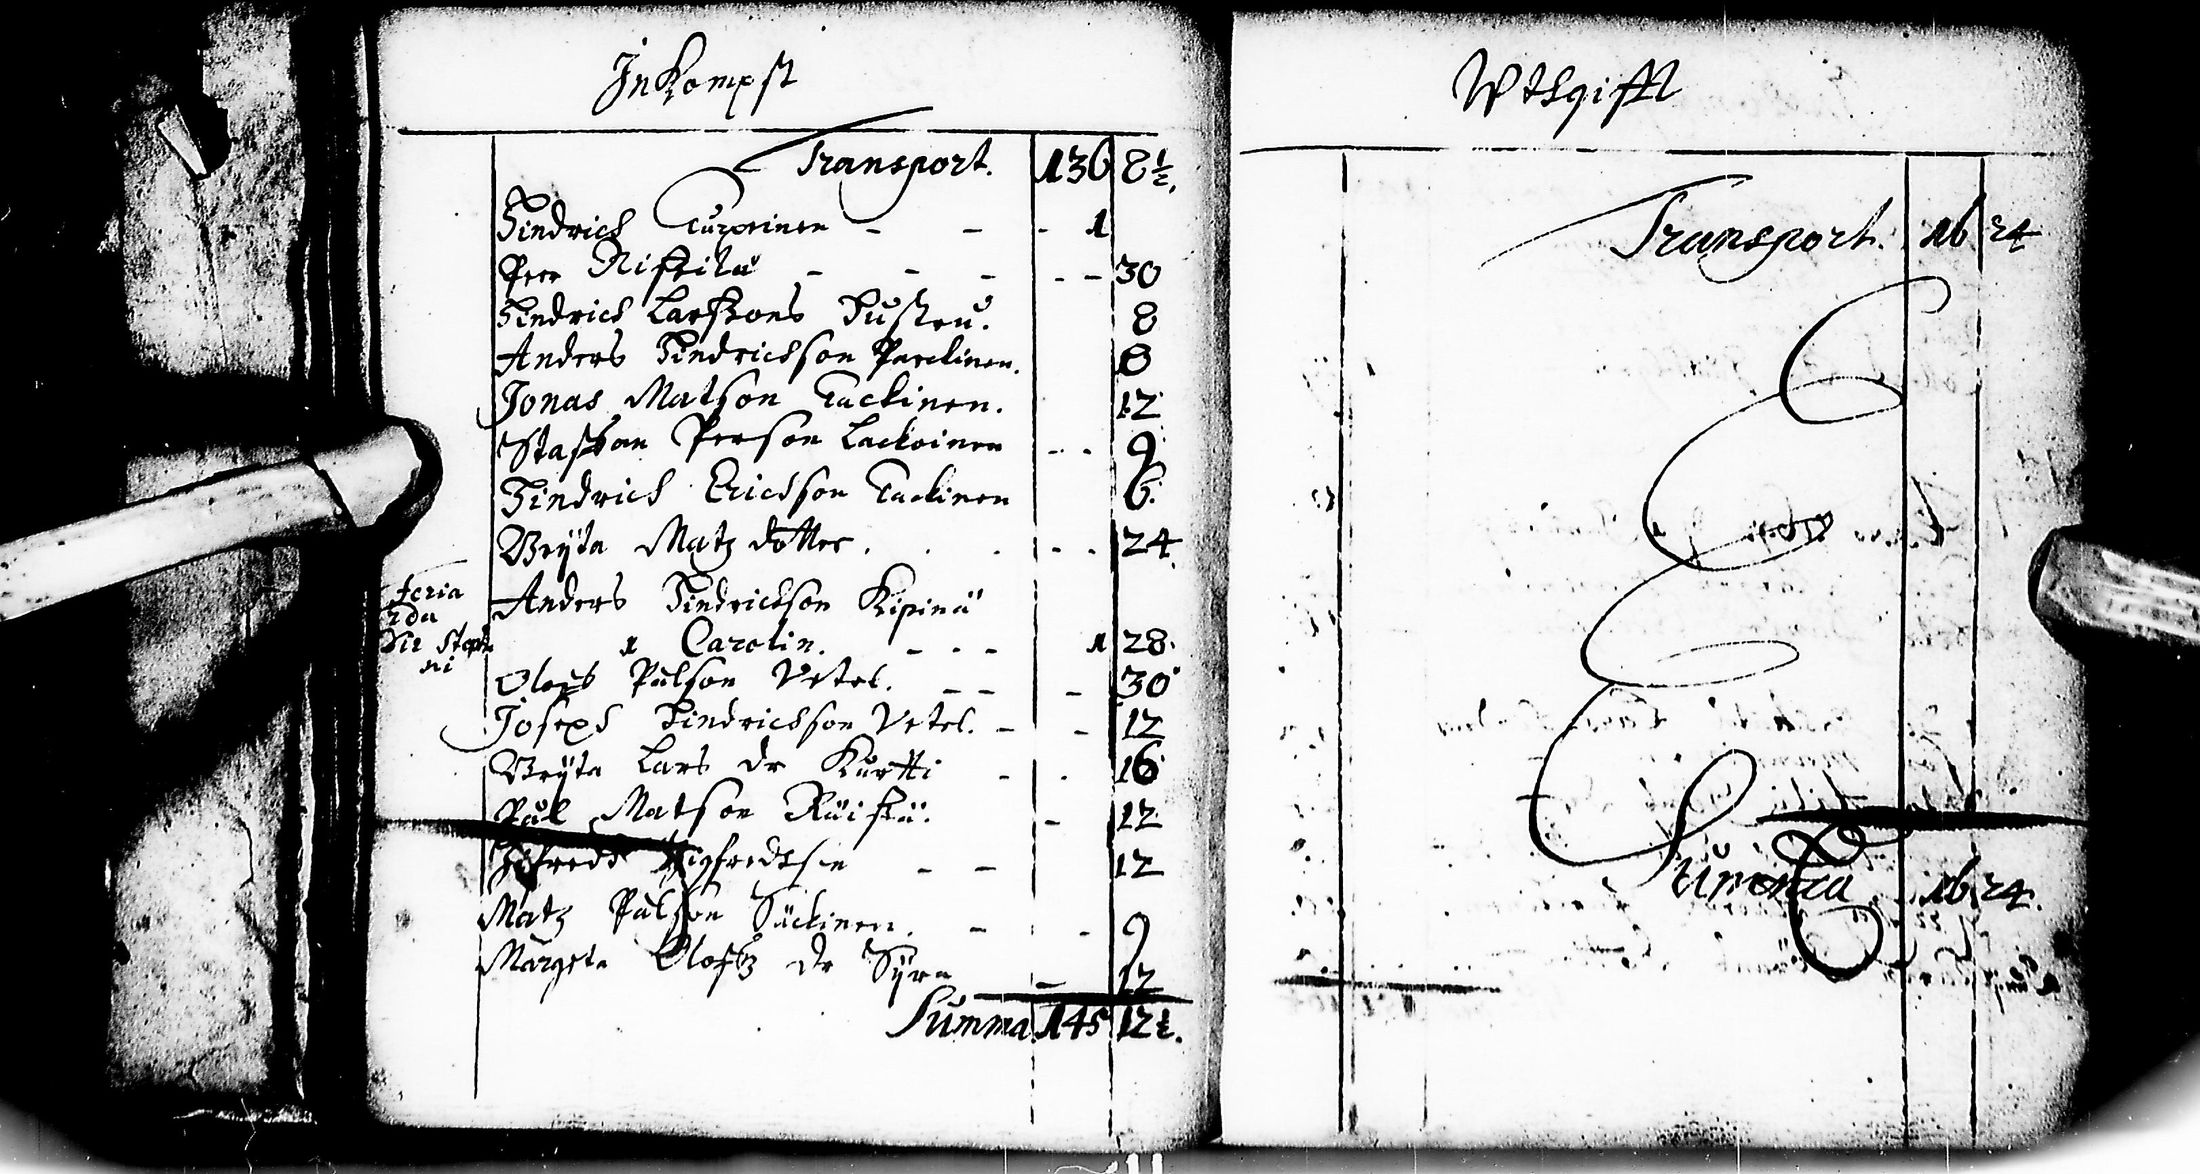 Inkompst
Transport. 136 8½.
Hindrich Turpeinen - - - 1
Peer Riskila - - - - - 30
Hindrich Larssons Hustru. 8
Anders Hindrichson Parckinen. 8
Jonas Matson Tackinen. 12
Staffan Person Lackoinen - - 9
Hindrich Erichson Tackinen 6.
Bryta Matz dotter . . . - - 24
feria
2da
Die Steph
ni
Anders Hindrichson Kipinä
1 Carolin. - - - 1 28.
Olofs Pålson Vetel. - - - 30
Joseph Hindrichsson Vetel. - - 12
Bryta Lars dr Kurtti - - 16
Pål Matson Räiskä. - 12
Sigfredsson - - 12
Matz Pålson Säckinen. - - 9
Margeta Olofz dr Syra - 12
Summa 145 12½.
Wthgifft
Transport. 16 24
Summa 16 24.